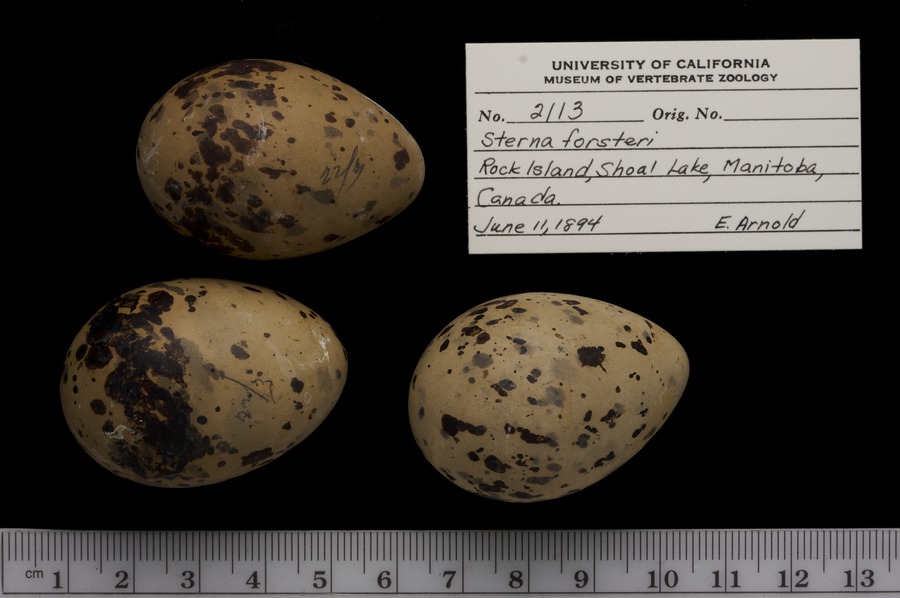 UNIVERSITY OF CALIFORNIA
MUSEUM OF VERTEBRATE ZOOLOGY
No. 2113 Orig. No.
Sterna forsteri
Rock Island, Shoal Lake, Manitoba,
Canada.
June 11, 1894 E. Arnold
cm 1 2 3 4 5 6 7 8 9 10 11 12 13